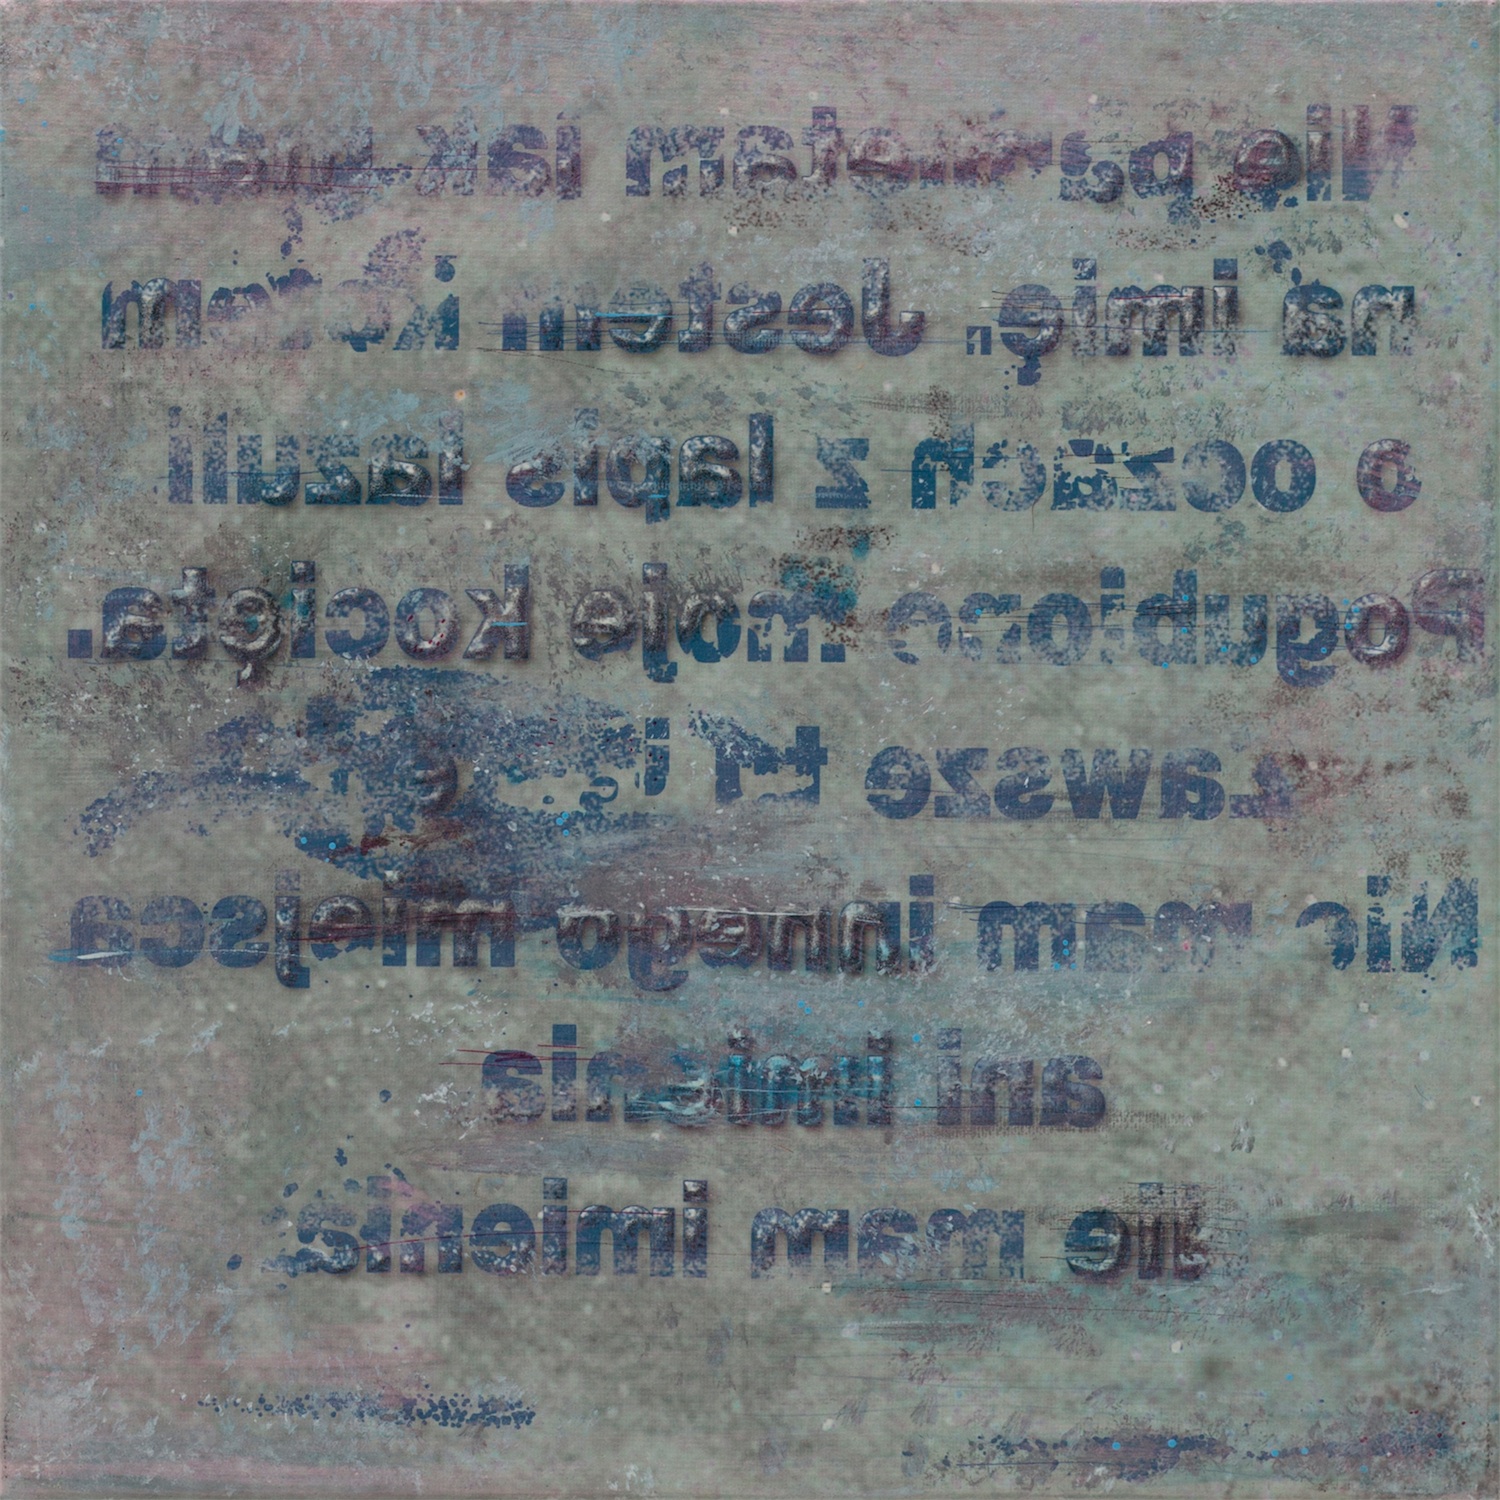 Nie pamiętam jak mam
na imię. Jestem
o oczach z lapis lazuli
Pogubiono moje kocięta.
zawsze tu
Nie mam innego miejsca
ani imienia
nie mam imienia